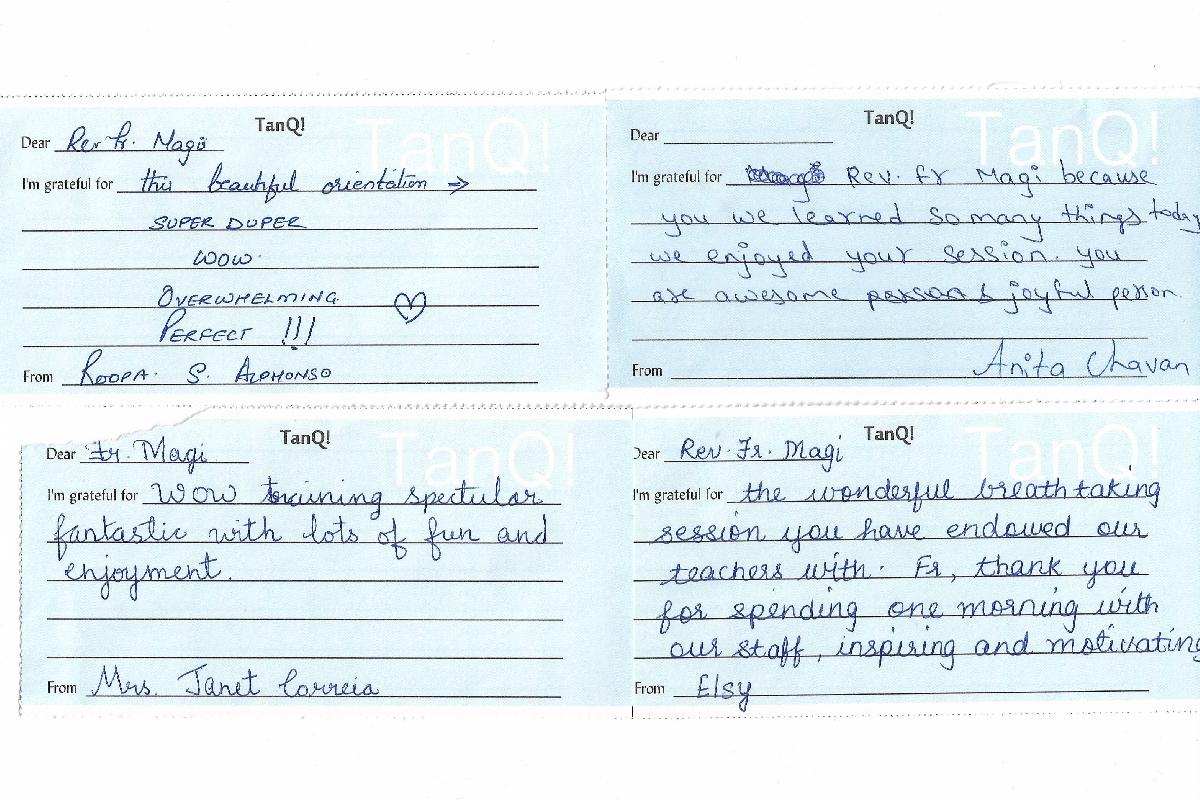 TanQ!
Dear Rev Fr. Magi
I'm grateful for this beautiful orientation →
SUPER DUPER
WOW.
OVERWHELMING ♡
PERFECT !!!
From ROOPA. S. ALPHONSO
TanQ!
Dear
I'm grateful for Rev. Fr Magi because
you we learned so many things today
we enjoyed your session. you
are awesome person & joyful person.
From Anita Chavan
TanQ!
Dear Fr. Magi
I'm grateful for Wow training spectular
fantastic with lots of fun and
enjoyment.
From Mrs. Janet Correia
TanQ!
Dear Rev. Fr. Magi
I'm grateful for the wonderful breath taking
session you have endowed our
teachers with. Fr, thank you
for spending one morning with
our staff, inspiring and motivating
From Elsy